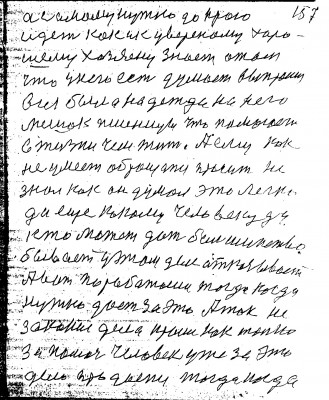 а самому нужно до кого 157
идет как к увереному харо-
шему хозяену знает о том
что у него ест думает выпрошу
была надежда на него
мешок пшеницы что помогает
в жизни чем жит. А если как
не умеет обращати просит не
зная как он думал это легко
да еще какому человеку да
кто может дат большинство
бывает в этом деле открывает
А вот поработаеш тогда когда
нужно дает за это А так не
закони дела проси как только
за помоч человек уже за это
дело тогда когда